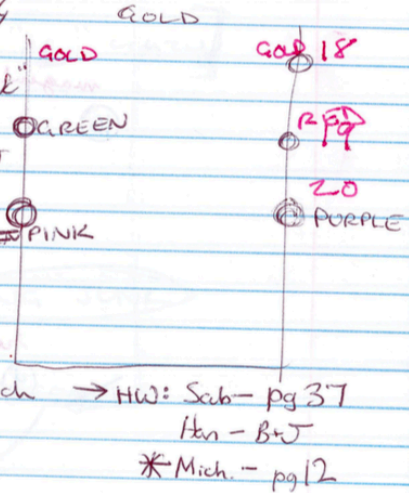 GOLD
GOLD GOLD 18
GREEN RED
20
PINK PURPLE
ch → HW: Sab- pg 37
Hm - B+J
* Mich. - pg 12